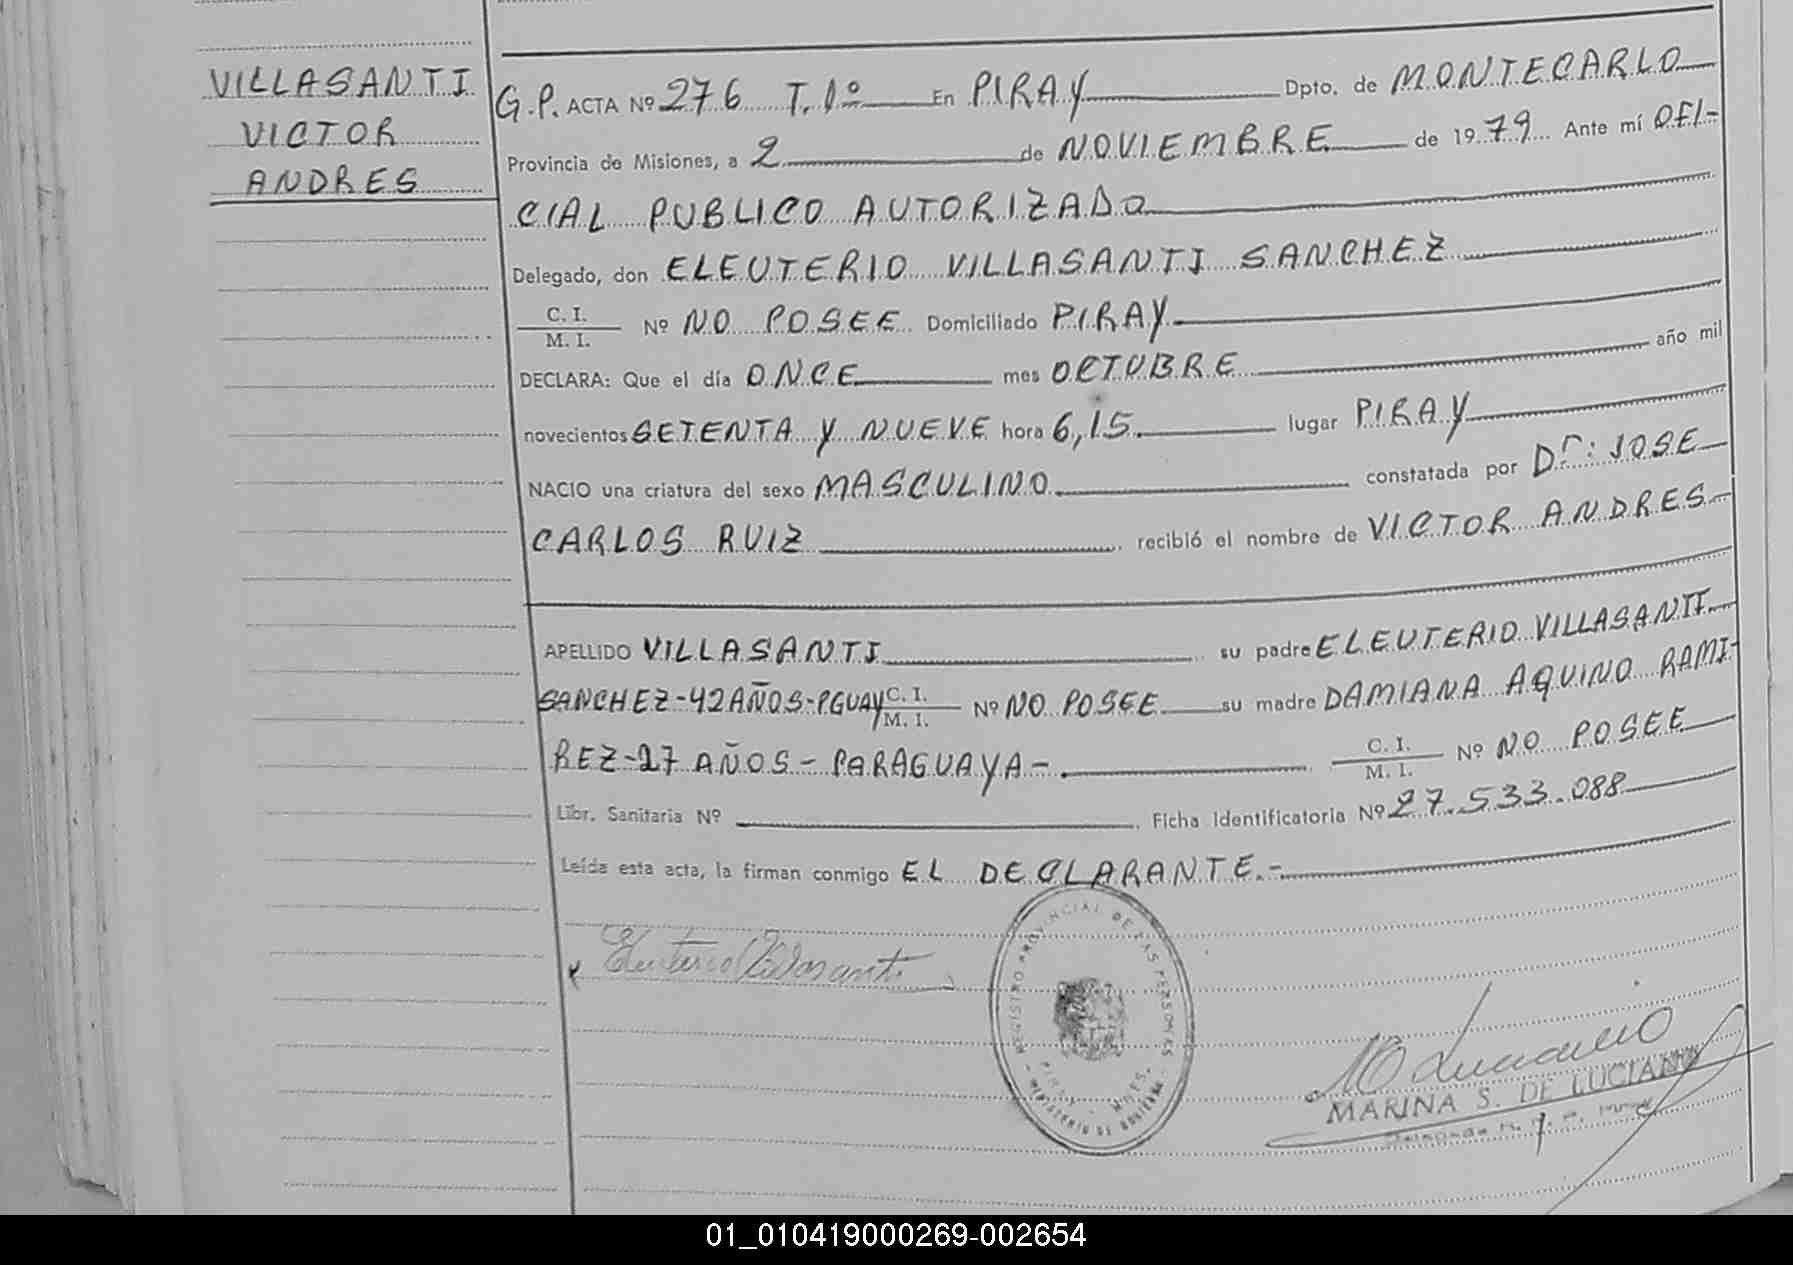 VILLASANTI
VICTOR
ANDRES
G.P. ACTA Nº 276 T.1º En PIRAY Dpto. de MONTECARLO
Provincia de Misiones, a 2 de NOVIEMBRE de 1979 Ante mí OFI-
CIAL PUBLICO AUTORIZADO
Delegado, don ELEUTERIO VILLASANTI SANCHEZ
C. I.
M. I. Nº NO POSEE Domiciliado PIRAY
DECLARA: Que el día ONCE mes OCTUBRE año mil
novecientos SETENTA Y NUEVE hora 6,15 lugar PIRAY
NACIO una criatura del sexo MASCULINO constatada por Dr: JOSE
CARLOS RUIZ recibió el nombre de VICTOR ANDRES
APELLIDO VILLASANTI su padre ELEUTERIO VILLASANTI
SANCHEZ-42 AÑOS-PGUAY C. I.
M. I. Nº NO POSEE su madre DAMIANA AQUINO RAMI-
REZ-27 AÑOS- PARAGUAYA- C. I.
M. I. Nº NO POSEE
Libr. Sanitaria Nº Ficha Identificatoria Nº 27.533.088
Leída esta acta, la firman conmigo EL DECLARANTE.-
Eleuterio Villasanti
REGISTRO PROVINCIAL DE LAS PERSONAS
PIRAY - MNES.
MINISTERIO DE GOBIERNO
MARINA S. DE LUCIANO
01_010419000269-002654